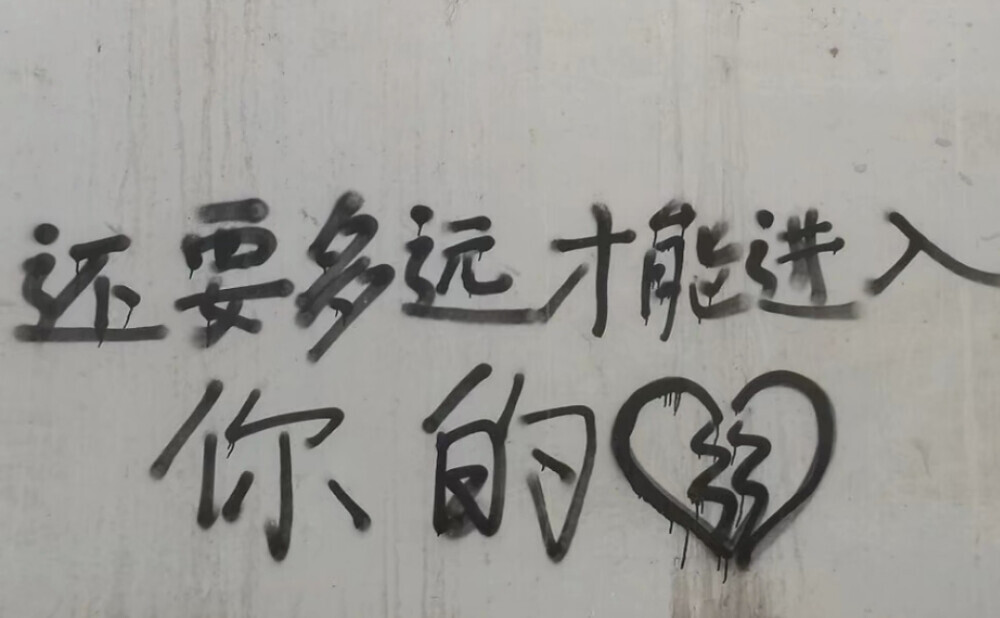 还要多远才能进入
你的💔